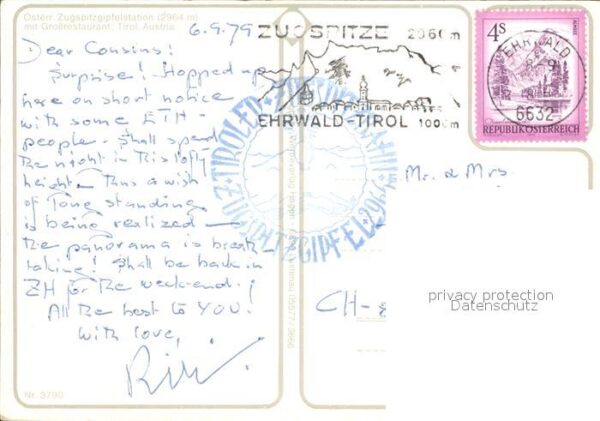 Österr. Zugspitzgipfelstation (2964 m)
mit Großrestaurant, Tirol, Austria
6.9.79
Dear Cousins!
Surprise! Hopped up
here on short notice
with some ETH-
people. Shall spend
the night in this lofty
height. Thus a wish
of long standing
is being realized -
the panorama is breath-
taking! Shall be back in
ZH for the week-end!
All the best to YOU!
With love,
Nr. 3790
ZUGSPITZE 2960m
EHRWALD-TIROL 1000m
TIROLER ZUGSPITZBAHN
ZUGSPITZGIPFEL 2964
4S
EHRWALD
6632
REPUBLIK ÖSTERREICH
Mr. & Mrs.
CH-
privacy protection
Datenschutz